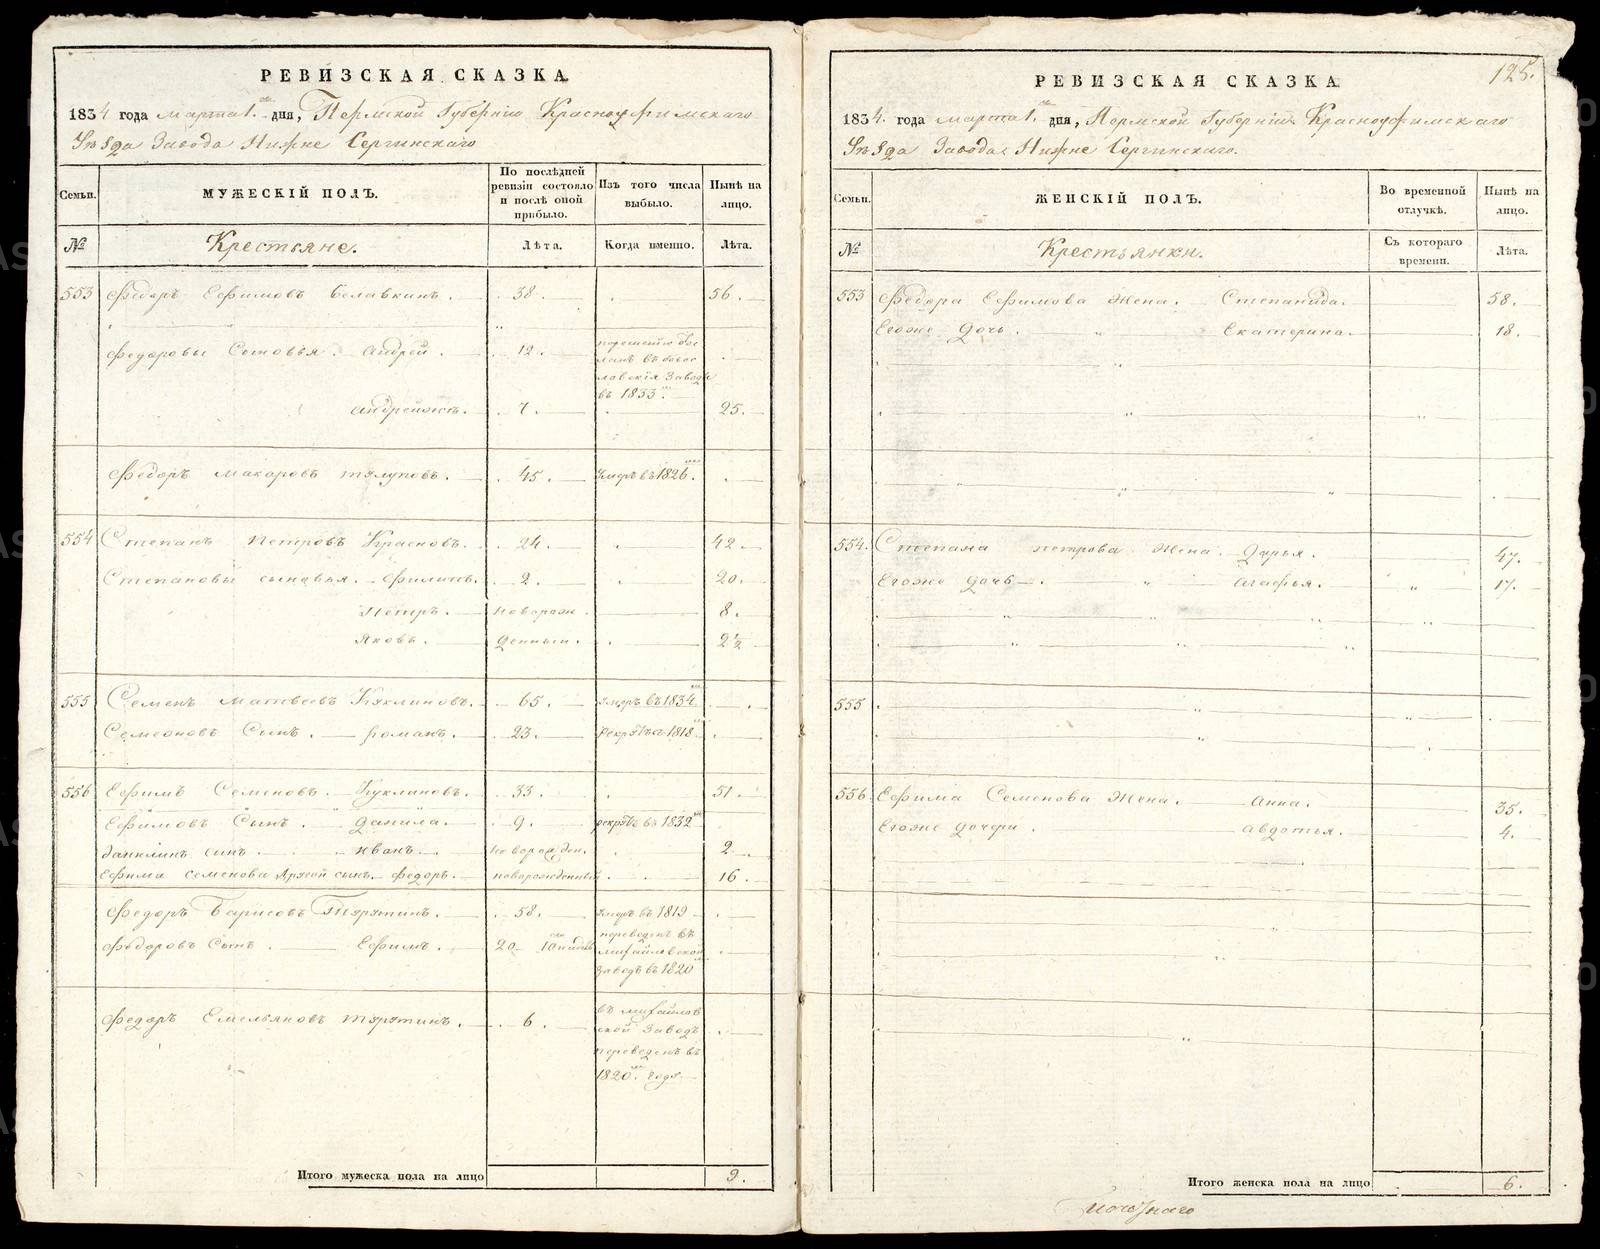 РЕВИЗСКАЯ СКАЗКА.
1834 года марта 1го дня, Пермской Губерніи Красноуфимскаго
Уѣзда Завода Нижне Сергинскаго
Семьи.
МУЖЕСКІЙ ПОЛЪ.
По послѣдней ревизіи состояло и послѣ оной прибыло.
Изъ того числа выбыло.
Нынѣ на лицо.
№
Крестьяне.
Лѣта.
Когда именно.
Лѣта.
553 Федоръ Ефимовъ 38. 56.
Федоровы Сыновья. Андрей. 12. в 1833
Андрейжъ. 7. 25.
Федоръ Макаровъ 45. Умеръ въ 1826.
554 Степанъ Петровъ Красновъ. 24. 42.
Степановы сыновья. Филипъ. 2. 20.
Петръ. новорож 8.
Яковъ. денныи. 2½
555 Семенъ Матвеевъ Куклиновъ. 65. умеръ въ 1834
Семеновъ Сынъ. Романъ. 23. 1818
556 Ефимъ Семеновъ Куклиновъ. 33. 51.
Ефимовъ Сынъ. Данила. 9. въ 1832
Данилинъ сынъ Иванъ. новорожден. 2
Ефима Семенова сынъ Федоръ. новорожденный 16.
Федоръ Борисовъ 58. умеръ въ 1819
Федоровъ Сынъ. Ефимъ. 20 переведенъ въ
михайловской
заводъ въ 1820
Федоръ Емельяновъ 6. въ михайлов
ской Заводъ
переведенъ въ
1820 года
Итого мужеска пола на лицо 9.
125.
РЕВИЗСКАЯ СКАЗКА.
1834. года марта 1го дня, Пермской Губерніи Красноуфимскаго
Уѣзда Завода Нижне Сергинскаго.
Семьи.
ЖЕНСКІЙ ПОЛЪ.
Во временной отлучкѣ.
Нынѣ на лицо.
№
Крестьянки.
Съ котораго времени.
Лѣта.
553 Федора Ефимова Жена. Степанида. 58.
Егоже Дочь. Екатерина. 18.
554. Степана Петрова Жена. Дарья. 47.
Егоже дочь Агафья. 17.
555
556 Ефима Семенова Жена. Анна. 35.
Егоже дочери Авдотья. 4.
Итого женска пола на лицо 6.